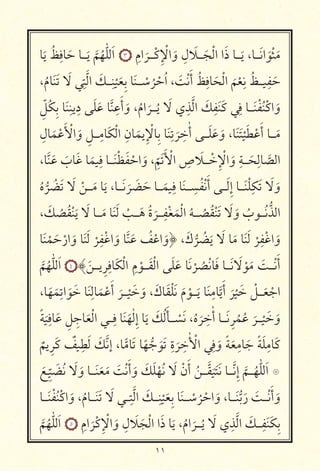 مَثْوَانَا، يَا ذَا الْجَلَالِ وَالْإِكْرَامِ ۝ اَللّٰهُمَّ يَا حَافِظُ يَا
حَفِيظُ نِعْمَ الْحَافِظُ أَنْتَ، اُحْرُسْنَا بِعَيْنِكَ الَّتِي لَا تَنَامُ،
وَاكْنُفْنَا فِي كَنَفِكَ الَّذِي لَا يُرَامُ، وَأَعِنَّا عَلَى دِينِنَا بِكُلِّ
مَا أَعْطَيْتَنَا، وَعَلَى أُخْرٰىنَا بِالْإِيمَانِ الْكَامِلِ وَالْأَعْمَالِ
الصَّالِحَةِ وَالْإِخْلَاصِ الْأَتَمِّ، وَاحْفَظْنَا فِيمَا غَابَ عَنَّا،
وَلَا تَكِلْنَا إِلَى أَنْفُسِنَا فِيمَا حَضَرَنَا، يَا مَنْ لَا تَضُرُّهُ
الذُّنُوبُ وَلَا تَنْقُصُهُ الْمَغْفِرَةُ هَبْ لَنَا مَا لَا يَنْقُصُكَ،
وَاغْفِرْ لَنَا مَا لَا يَضُرُّكَ، ﴿وَاعْفُ عَنَّا وَاغْفِرْ لَنَا وَارْحَمْنَا
أَنْتَ مَوْلَانَا فَانْصُرْنَا عَلَى الْقَوْمِ الْكَافِرِينَ﴾ ۝ اَللّٰهُمَّ
اجْعَلْ خَيْرَ أَيَّامِنَا يَوْمَ نَلْقَاكَ، وَخَيْرَ أَعْمَالِنَا خَوَاتِمَهَا،
وَخَيْرَ عُمُرِنَا أٰخِرَهُ، نَسْأَلُكَ يَا إِلٰهَنَا فِي الْعَاجِلِ عَافِيَةً
كَامِلَةً جَامِعَةً وَفِي الْأٰخِرَةِ تَوَجُّهًا تَامًّا، إِنَّكَ لَطِيفٌ كَرِيمٌ
۞ اَللّٰهُمَّ إِنَّا نَتَيَقَّنُ أَنْ لَا نُهْلَكَ وَأَنْتَ مَعَنَا وَلَا نُضَيَّعَ
وَأَنْتَ رَبُّنَا، وَاحْرُسْنَا بِعَيْنِكَ الَّتِي لَا تَنَامُ، وَاكْنُفْنَا
بِكَنَفِكَ الَّذِي لَا يُرَامُ، يَا ذَا الْجَلَالِ وَالْإِكْرَامِ ۝ اَللّٰهُمَّ
١١